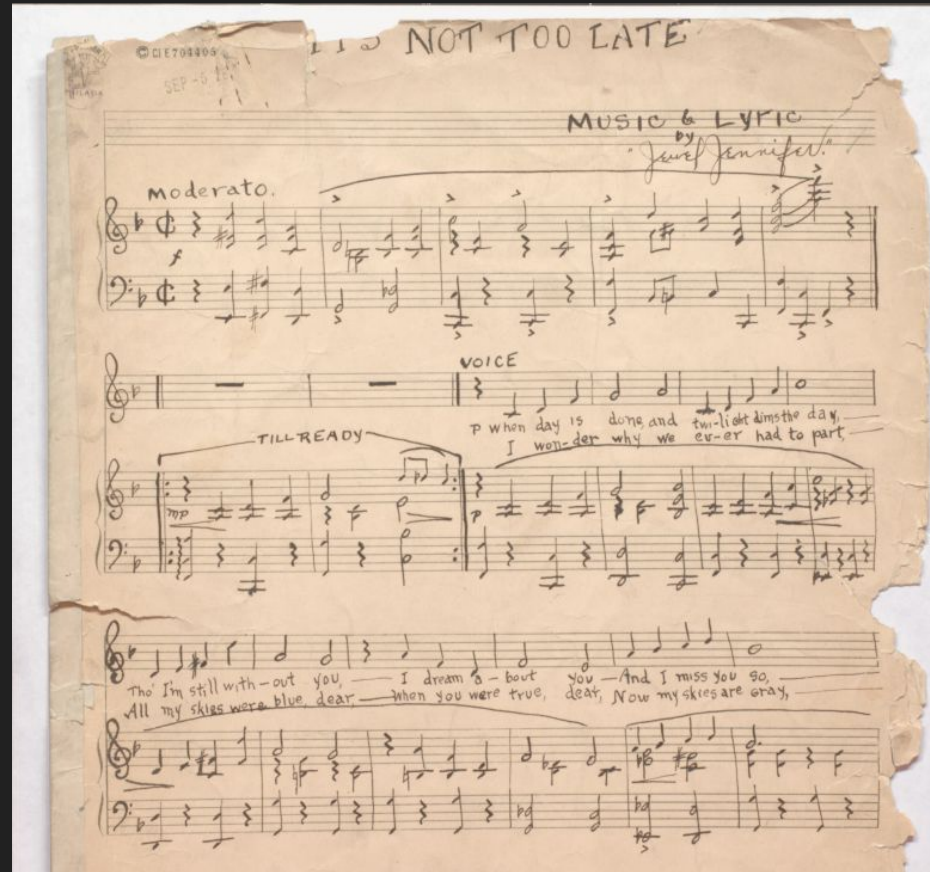 ©CIE704405
SEP -5
IT'S NOT TOO LATE
MUSIC & LYRIC
by
"Jewel Jennifer."
Moderato.
f
VOICE
P When day is done, and twi-light dims the day,
I won-der why we ev-er had to part,
TILL READY
mp
p
Tho' I'm still with-out you, — I dream a-bout you — And I miss you so,
All my skies were blue, dear — When you were true, dear, Now my skies are gray,